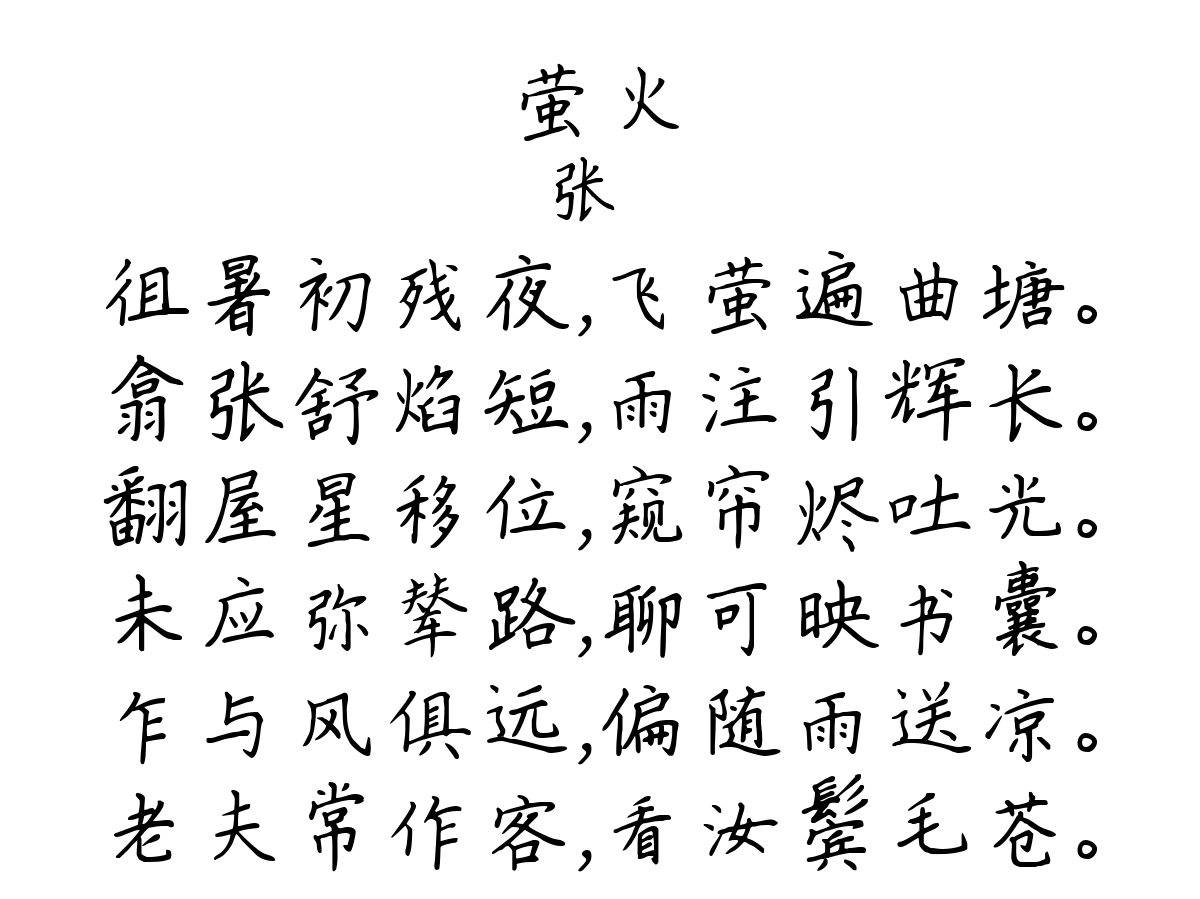 萤火
张
徂暑初残夜,飞萤遍曲塘。
翕张舒焰短,雨注引辉长。
翻屋星移位,窥帘烬吐光。
未应弥辇路,聊可映书囊。
乍与风俱远,偏随雨送凉。
老夫常作客,看汝鬓毛苍。